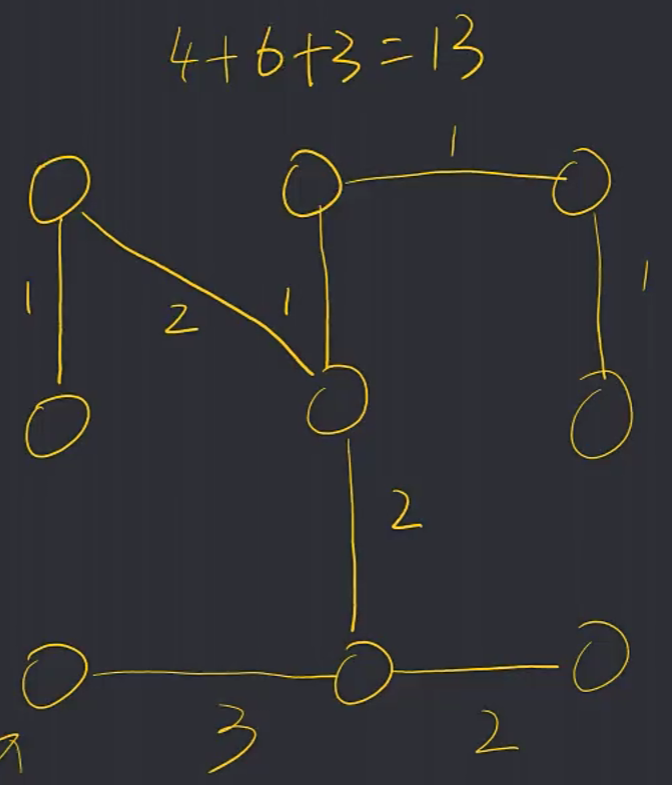 4+6+3=13
1
1
2
1
1
2
3
2